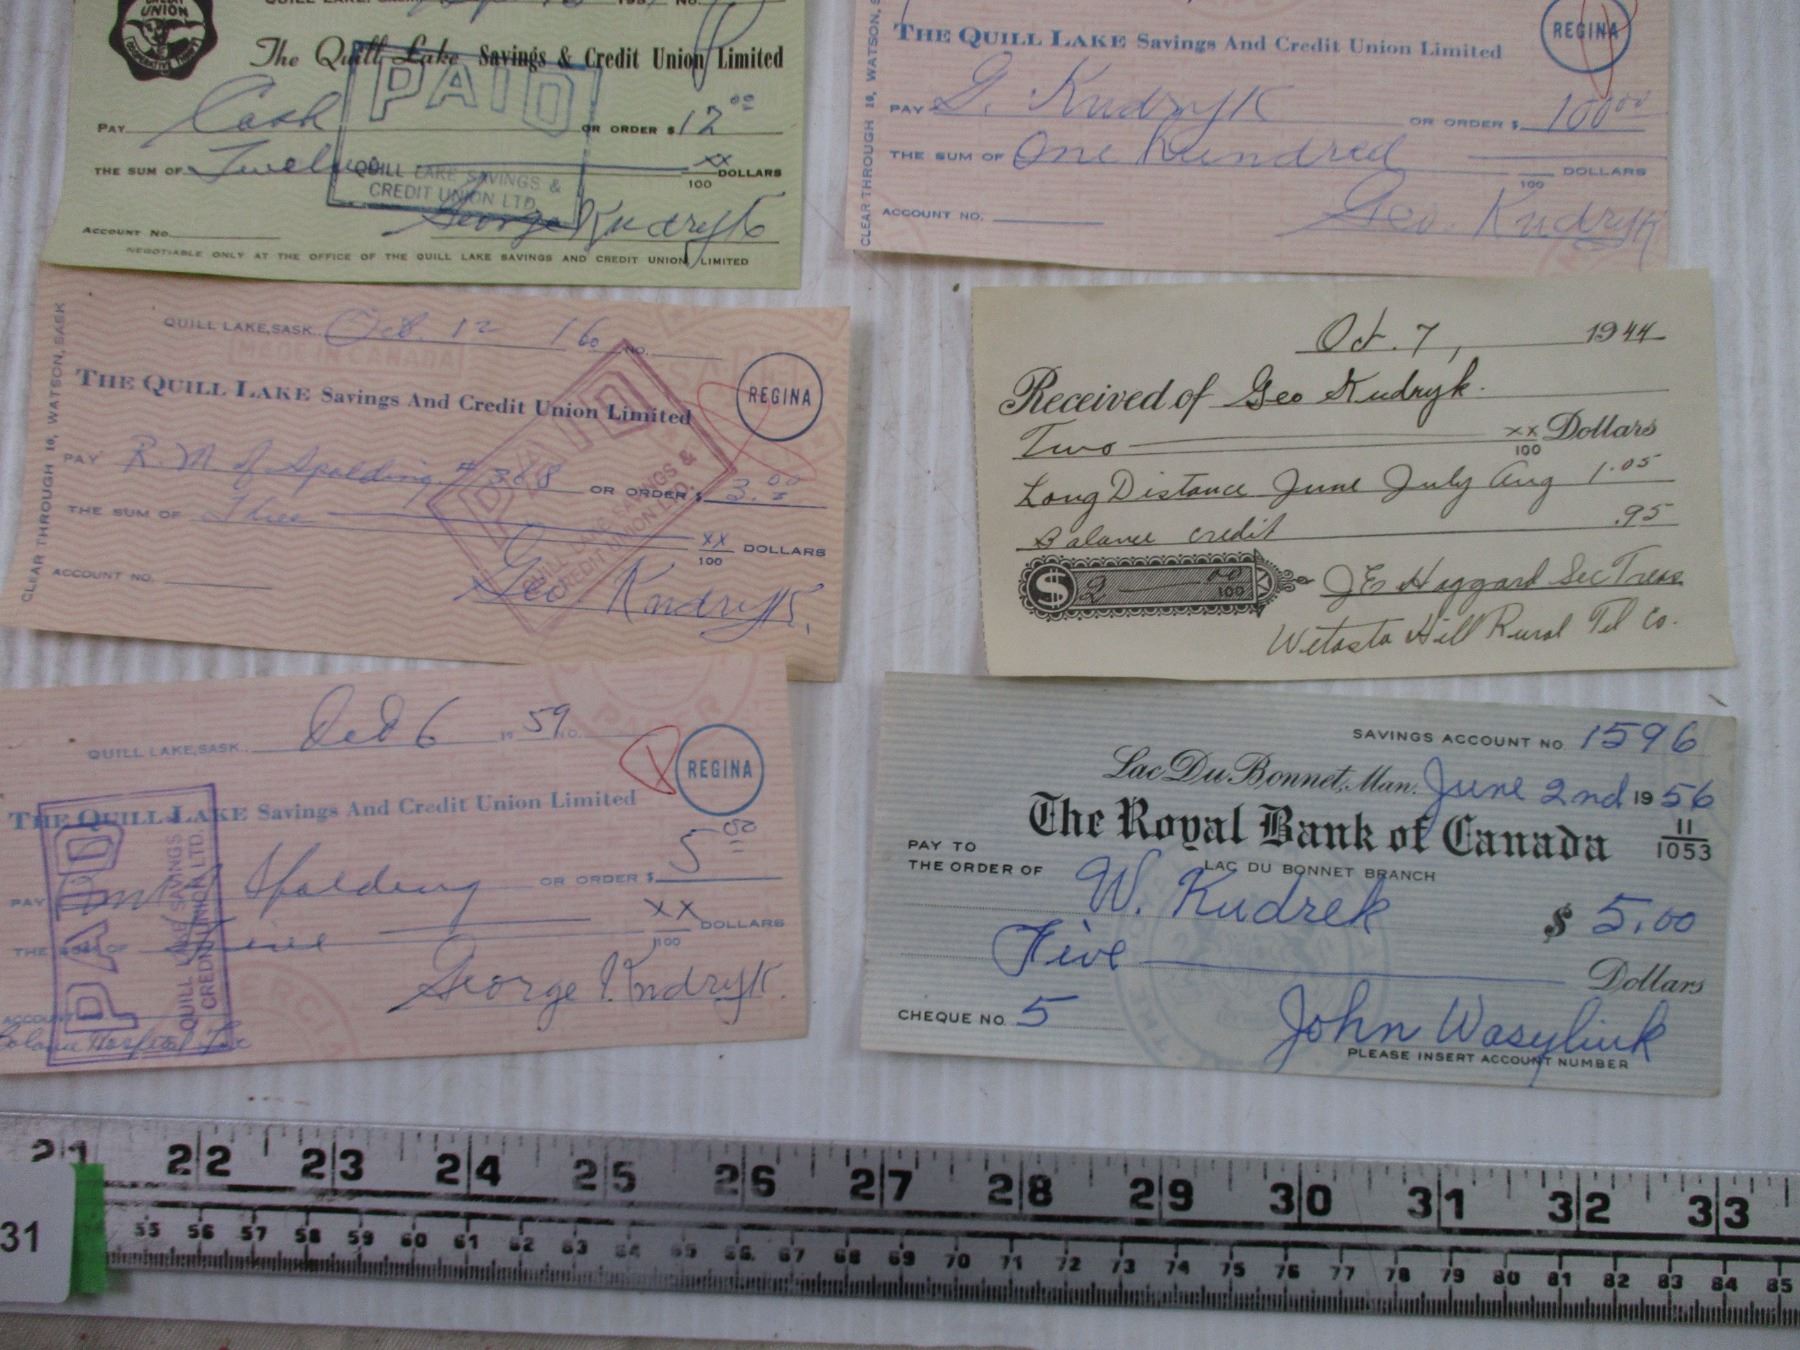 UNION
The Quill Lake Savings & Credit Union Limited
PAID
PAY Cash OR ORDER $ 12 00
THE SUM OF Twelve xx/100 DOLLARS
QUILL LAKE SAVINGS &
CREDIT UNION LTD.
George Kudryk
ACCOUNT No.
NEGOTIABLE ONLY AT THE OFFICE OF THE QUILL LAKE SAVINGS AND CREDIT UNION LIMITED
CLEAR THROUGH 10, WATSON, S
THE QUILL LAKE Savings And Credit Union Limited
REGINA
PAY G. Kudryk OR ORDER $ 100 00
THE SUM OF One hundred /100 DOLLARS
ACCOUNT NO.
Geo. Kudryk
CLEAR THROUGH 10, WATSON, SASK
QUILL LAKE, SASK. Oct. 12 60 NO.
MADE IN CANADA
THE QUILL LAKE Savings And Credit Union Limited
REGINA
PAY R. M of Spalding # 368 OR ORDER $ 3.00
THE SUM OF Three xx/100 DOLLARS
PAID
QUILL LAKE SAVINGS &
CREDIT UNION LTD.
ACCOUNT NO.
Geo. Kudryk
Oct. 7, 1944
Received of Geo Kudryk.
Two xx/100 Dollars
Long Distance June July Aug 1.05
Balance credit .95
$ 2 00/100
J E Haggard Sec Treas
Wetasta Hill Rural Tel Co.
QUILL LAKE, SASK. 6 1959 NO.
REGINA
THE QUILL LAKE Savings And Credit Union Limited
PAY Spalding OR ORDER $ 5 00
THE SUM OF Five XX/100 DOLLARS
PAID
QUILL LAKE SAVINGS
CREDIT UNION LTD.
George Kudryk.
ACCOUNT
Hospital Tax
SAVINGS ACCOUNT NO. 1596
Lac Du Bonnet, Man. June 2nd 1956
The Royal Bank of Canada 11/1053
LAC DU BONNET BRANCH
PAY TO
THE ORDER OF W. Kudrek $ 5.00
Five Dollars
CHEQUE NO. 5 John Wasylink
PLEASE INSERT ACCOUNT NUMBER
21 22 23 24 25 26 27 28 29 30 31 32 33
31
55 56 57 58 59 60 61 62 63 64 65 66 67 68 69 70 71 72 73 74 75 76 77 78 79 80 81 82 83 84 85